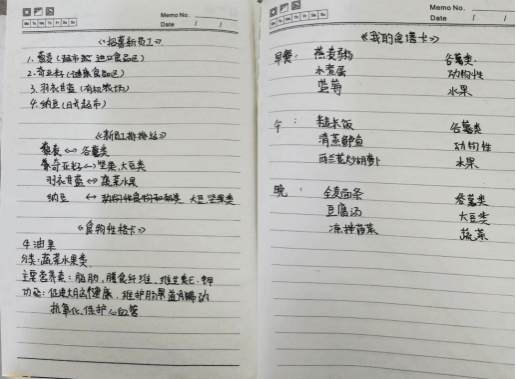 Memo No.
Mo Tu We Th Fr Sa Su
Date / /
《招喜新员工》
1. 藜麦(超市 进口食品区)
2. 奇亚籽(健康食品区)
3. 羽衣甘蓝(有机农场)
4. 纳豆(日式超市)
《新员工排排站》
藜麦 ↔ 谷薯类
奇亚籽 ↔ 坚果,大豆类
羽衣甘蓝 ↔ 蔬菜水果
纳豆 ↔ 大豆坚果类
《食物性格卡》
牛油果
分类:蔬菜水果类
主要营养素:脂肪,膳食纤维,维生素E,钾
功能:促进大脑健康,维护肠
抗氧化,保护心血管
Memo No.
Mo Tu We Th Fr Sa Su
Date / /
《我的食谱卡》
早餐: 燕麦粥 谷薯类
水煮蛋 功构性
蓝莓 水果
午: 糙米饭 谷薯类
清蒸鲈鱼 功构性
西兰花炒胡萝卜 水果
晚: 全麦面条 谷薯类
豆腐汤 大豆类
凉拌菠菜 蔬菜